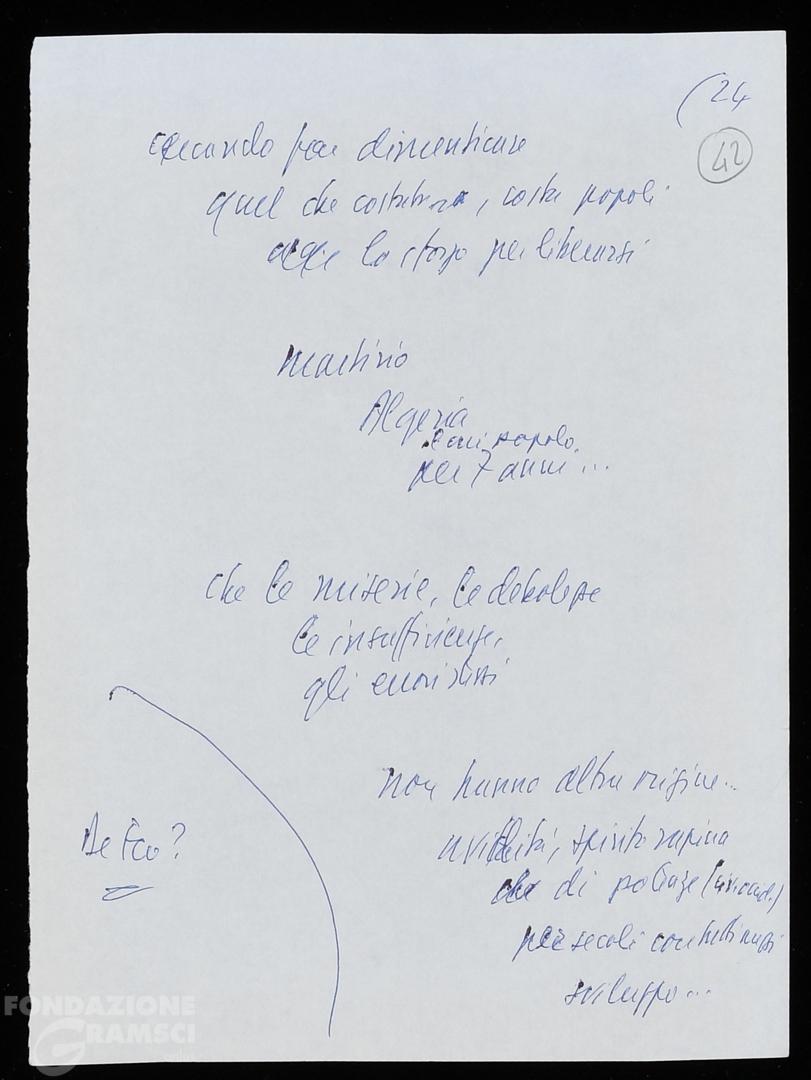 (24
42
cercando far dimenticare
quel che costa popoli
lo sforzo per liberarsi
martirio
Algeria
popolo
per 7 anni...
che le miserie, le debolezze
le insufficienze,
gli errori stessi
non hanno altra origine...
avidità, spirito rapina
che di potenze
per secoli
sviluppo...
De Eco?
FONDAZIONE
GRAMSCI